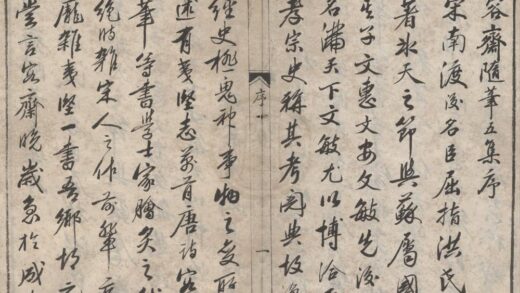 容齋隨筆五集序
宋南渡後名臣屈指洪氏
著冰天之節與蘇屬國
生子文惠文安文敏先後
名滿天下文敏尤以博洽
孝宗史稱其考閱典故
序
一
經史極鬼神事物之變
述有夷堅志萬首唐詩容
筆等書學士家膾炙之
絶時雜宋人之作前輩
龐雜夷堅一書吾鄉胡
嘗言容齋晚歲急於成